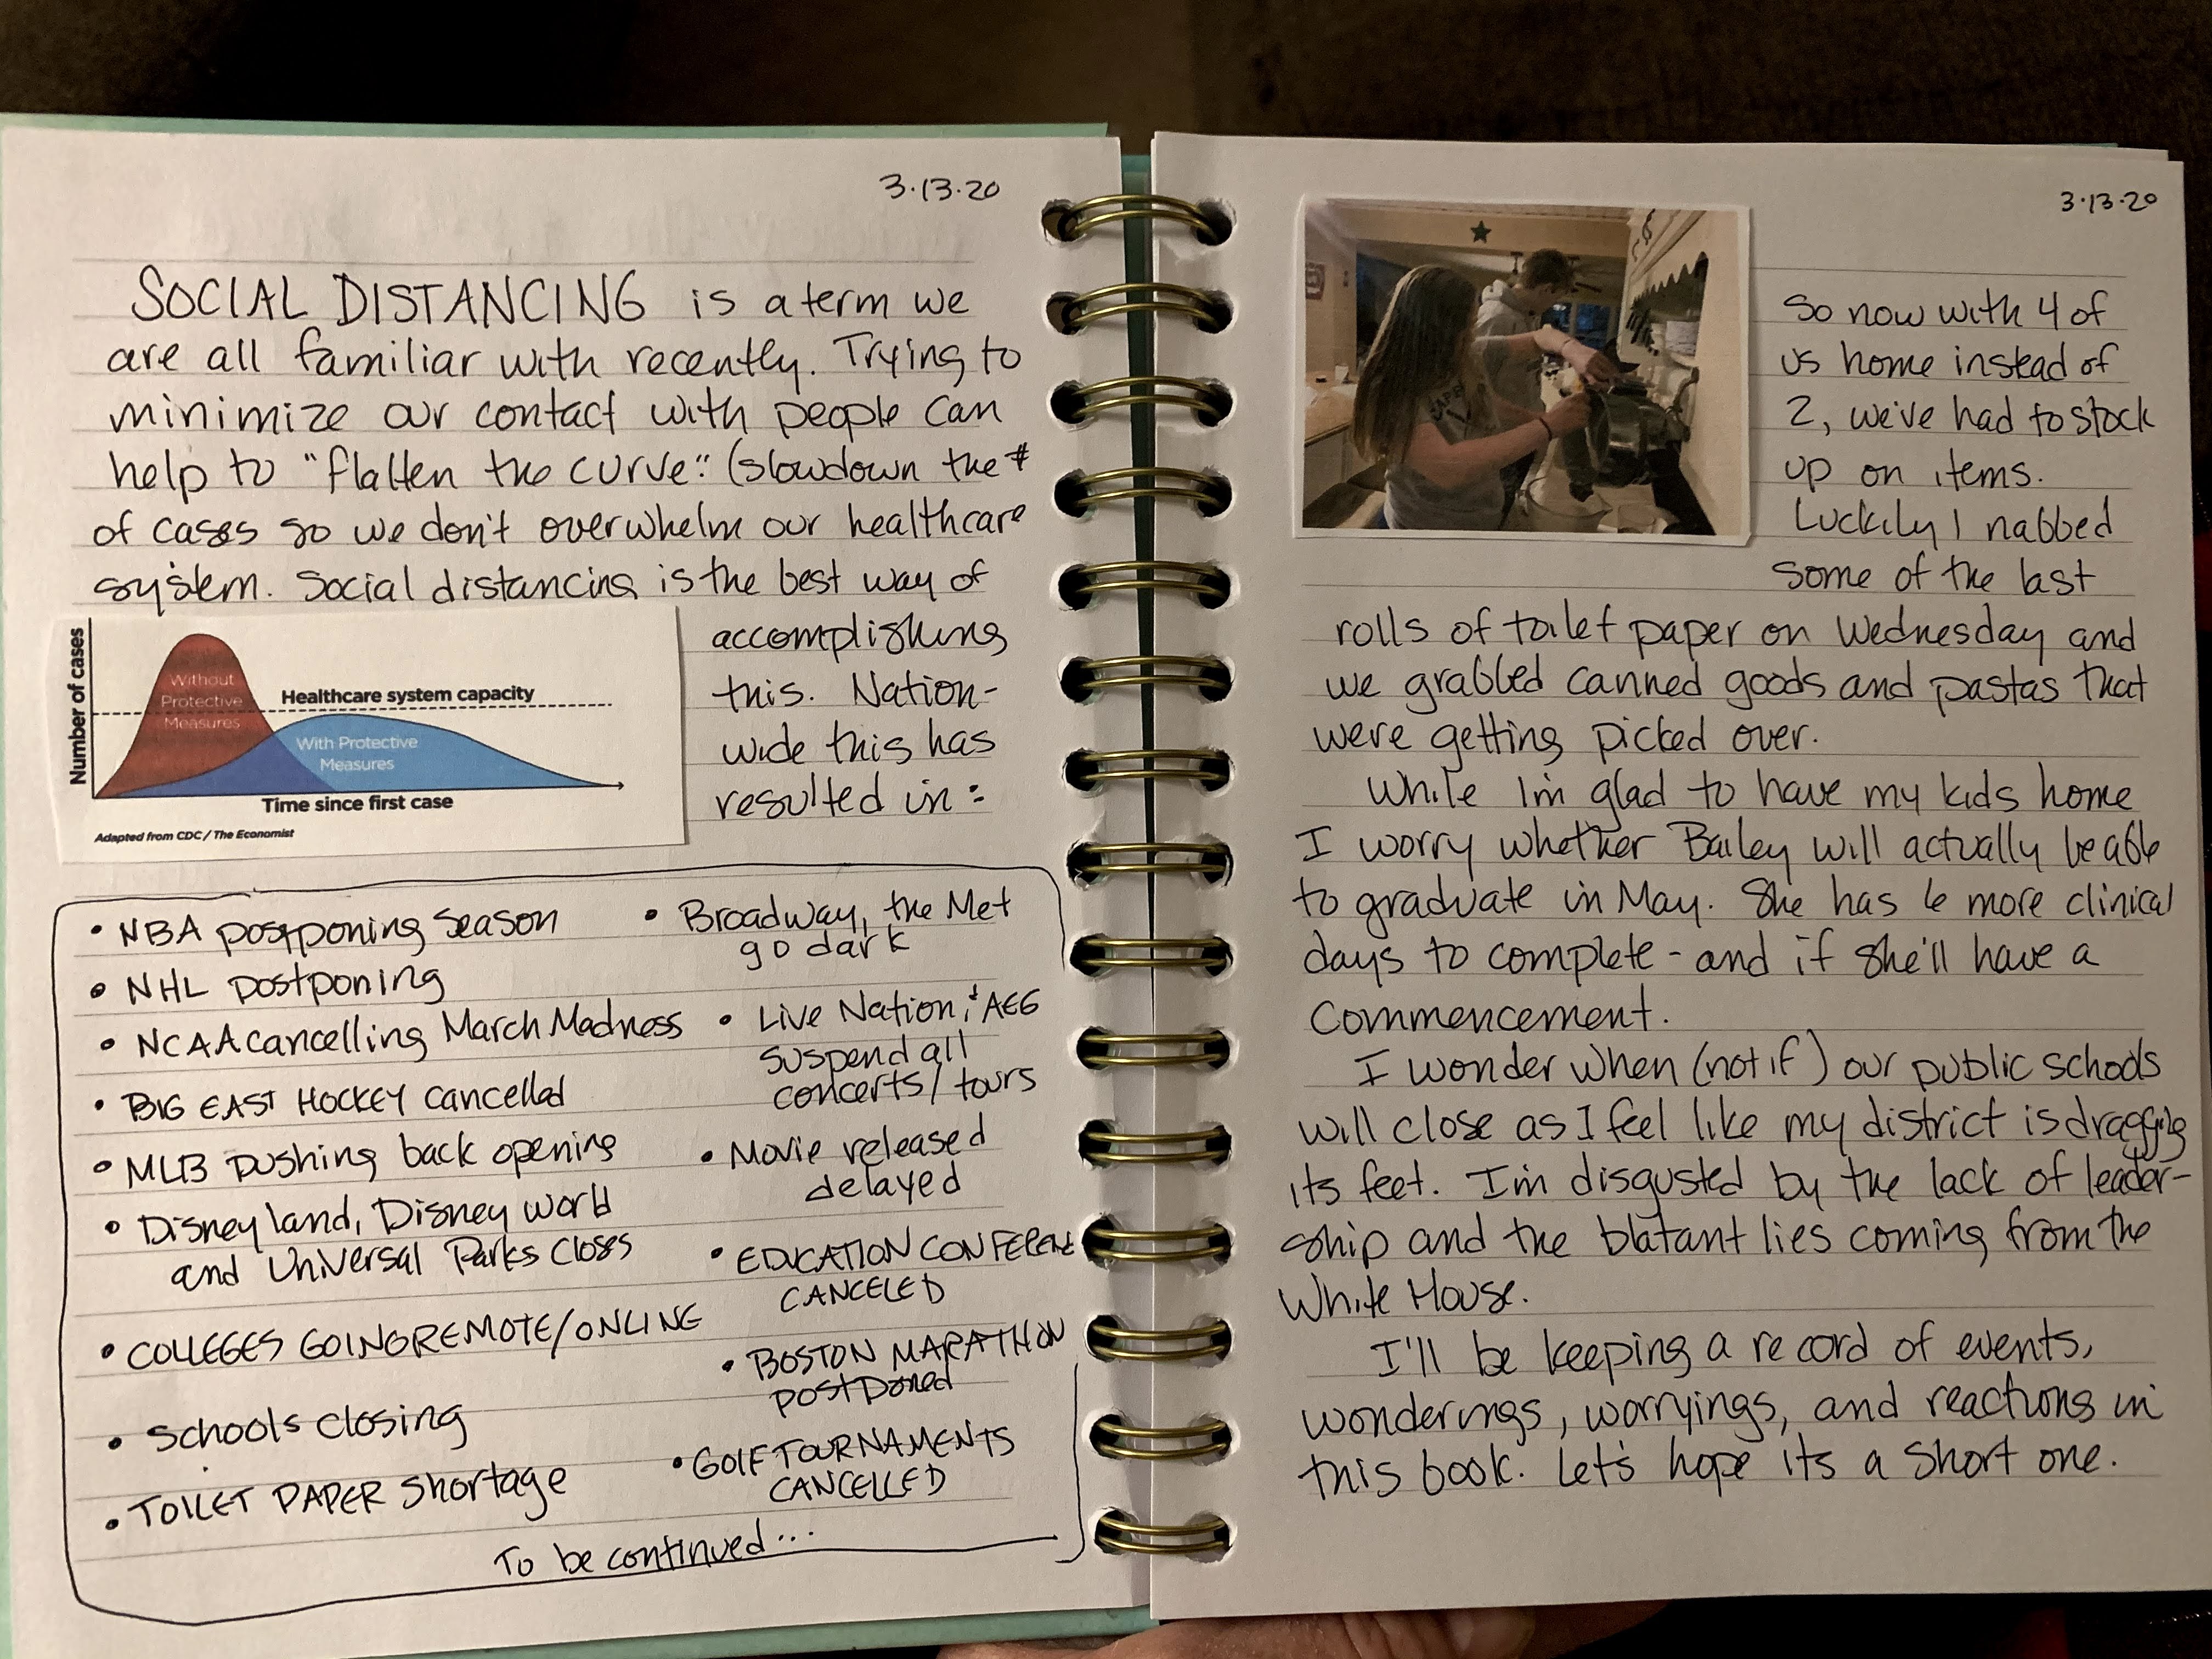 3.13.20
SOCIAL DISTANCING is a term we
are all familiar with recently. Trying to
minimize our contact with people can
help to "flatten the curve". (slowdown the #
of cases so we don't overwhelm our healthcare
system. Social distancing is the best way of
accomplishing
this. Nation-
wide this has
resulted in:
Number of cases
Without
Protective
Measures
Healthcare system capacity
With Protective
Measures
Time since first case
Adapted from CDC / The Economist
• NBA postponing season
• NHL postponing
• NCAA cancelling March Madness
• BIG EAST HOCKEY cancelled
• MLB pushing back opening
• Disneyland, Disney world
and Universal Parks Closes
• COLLEGES GOING REMOTE/ONLINE
• Schools closing
• TOILET PAPER shortage
• Broadway, the Met
go dark
• Live Nation & AEG
suspend all
concerts/tours
• Movie released
delayed
• EDUCATION CONFERENCE
CANCELED
• BOSTON MARATHON
postponed
• GOLF TOURNAMENTS
CANCELLED
To be continued...
3.13.20
So now with 4 of
us home instead of
2, we've had to stock
up on items.
Luckily I nabbed
some of the last
rolls of toilet paper on Wednesday and
we grabbed canned goods and pastas that
were getting picked over.
While I'm glad to have my kids home
I worry whether Bailey will actually be able
to graduate in May. She has 6 more clinical
days to complete - and if she'll have a
commencement.
I wonder when (not if) our public schools
will close as I feel like my district is dragging
its feet. I'm disgusted by the lack of leader-
ship and the blatant lies coming from the
White House.
I'll be keeping a record of events,
wonderings, worryings, and reactions in
this book. Let's hope its a short one.